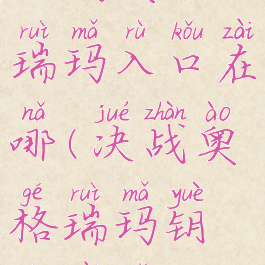 ruì mǎ rù kǒu zài
瑞玛入口在
nǎ jué zhàn ào
哪(决战奥
gé ruì mǎ yuè
格瑞玛钥